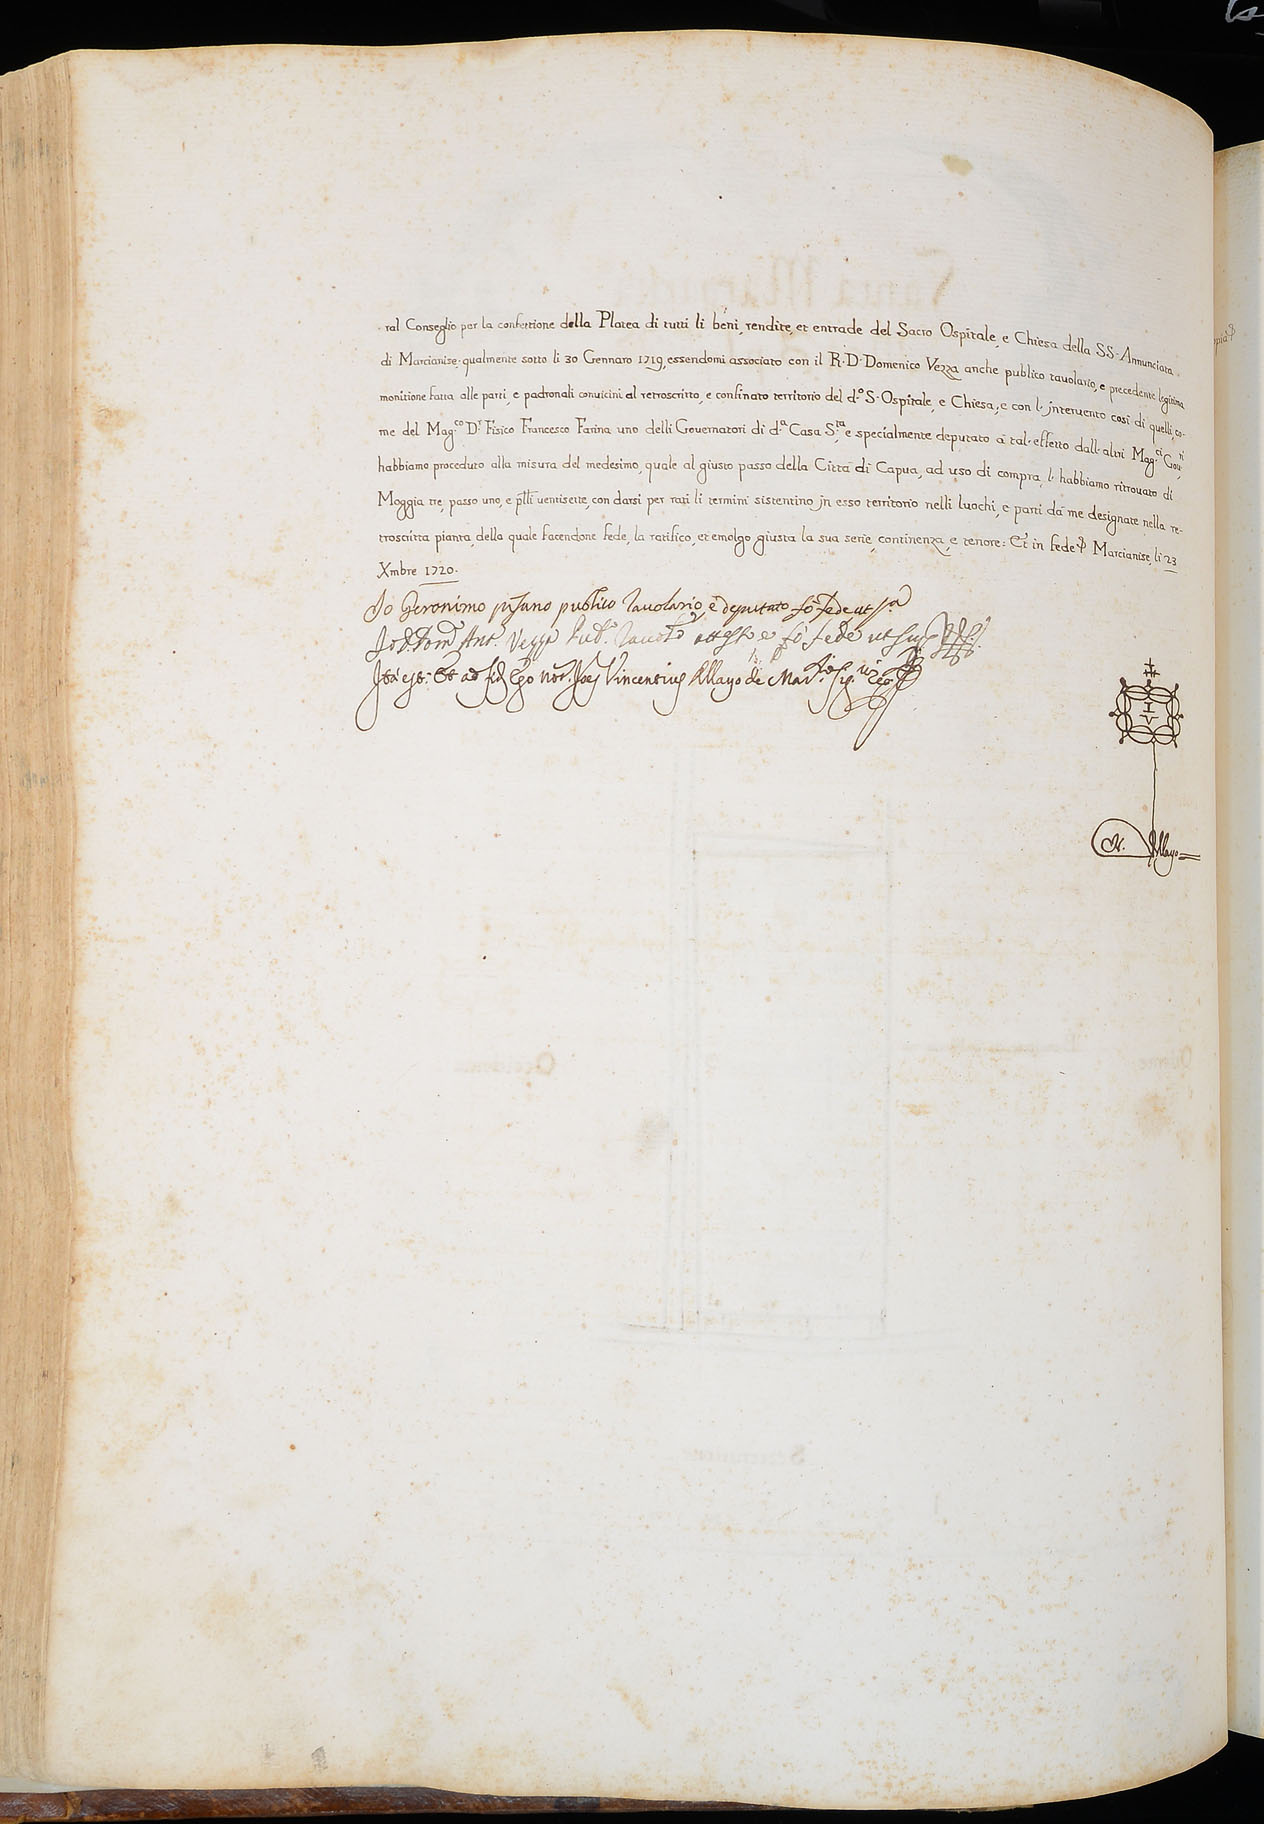 ral Conseglio per la confettione della Platea di tutti li beni, rendite, et entrade del Sacro Ospitale, e Chiesa della SS. Annunciata
di Marcianise. qualmente sotto li 30 Gennaro 1719, essendomi associato con il R. D. Domenico Vezza anche publico tauolario, e precedente legitima
monitione fatta alle parti, e padronali conuicini al retroscritto, e confinato territorio del d.º S. Ospitale, e Chiesa, e con l. jnteruento così di quelli, co-
me del Mag.co D.r Fisico Francesco Farina uno delli Gouernatori di d.a Casa S.ta e specialmente deputato à tal. effetto dall. altri Mag.ci Gou.ri
habbiamo proceduto alla misura del medesimo, quale al giusto passo della Città di Capua, ad uso di compra, l. habbiamo ritrouato di
Moggia tre, passo uno, e p̃tti uentisette, con darsi per rati li termini sistentino jn esso territorio nelli luochi, e parti dà me designate nella re-
troscritta pianta, della quale facendone fede, la ratifico, et emolgo giusta la sua serie, continenza, e tenore: Et in fede Marcianise, li 23
Xmbre 1720.
Io Geronimo publico Tauolario, e deputato fò fede ut s.a
Io D. Dom.co Ant.o Vezza Pub.o Tauol.o attesto e fò fede ut sup.a
Ita est: Et ad fid. Ego not. Joes Vincentius Allayo de Mar.
I V
N. Allayo